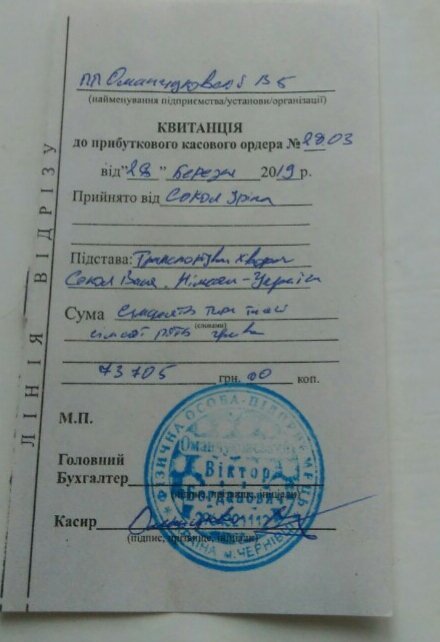 ЛІНІЯ ВІДРІЗУ
ПП Оманчуковської В Б
(найменування підприємства/установи/організації)
КВИТАНЦІЯ
до прибуткового касового ордера № 28.03
від "28" березня 2019 р.
Прийнято від Сокол Ірина
Підстава: Транспортування хворої
Сокол Ваня. Німеч - Україна
Сума сімдесят три тисячі
(словами)
сімсот п'ять гривень
73 705 грн. 00 коп.
М.П.
Головний
Бухгалтер
(підпис, прізвище, ініціали)
Касир
(підпис, прізвище, ініціали)
ФІЗИЧНА ОСОБА-ПІДПРИЄМЕЦЬ
Віктор
Богданович
УКРАЇНА м. ЧЕРНІВЦІ